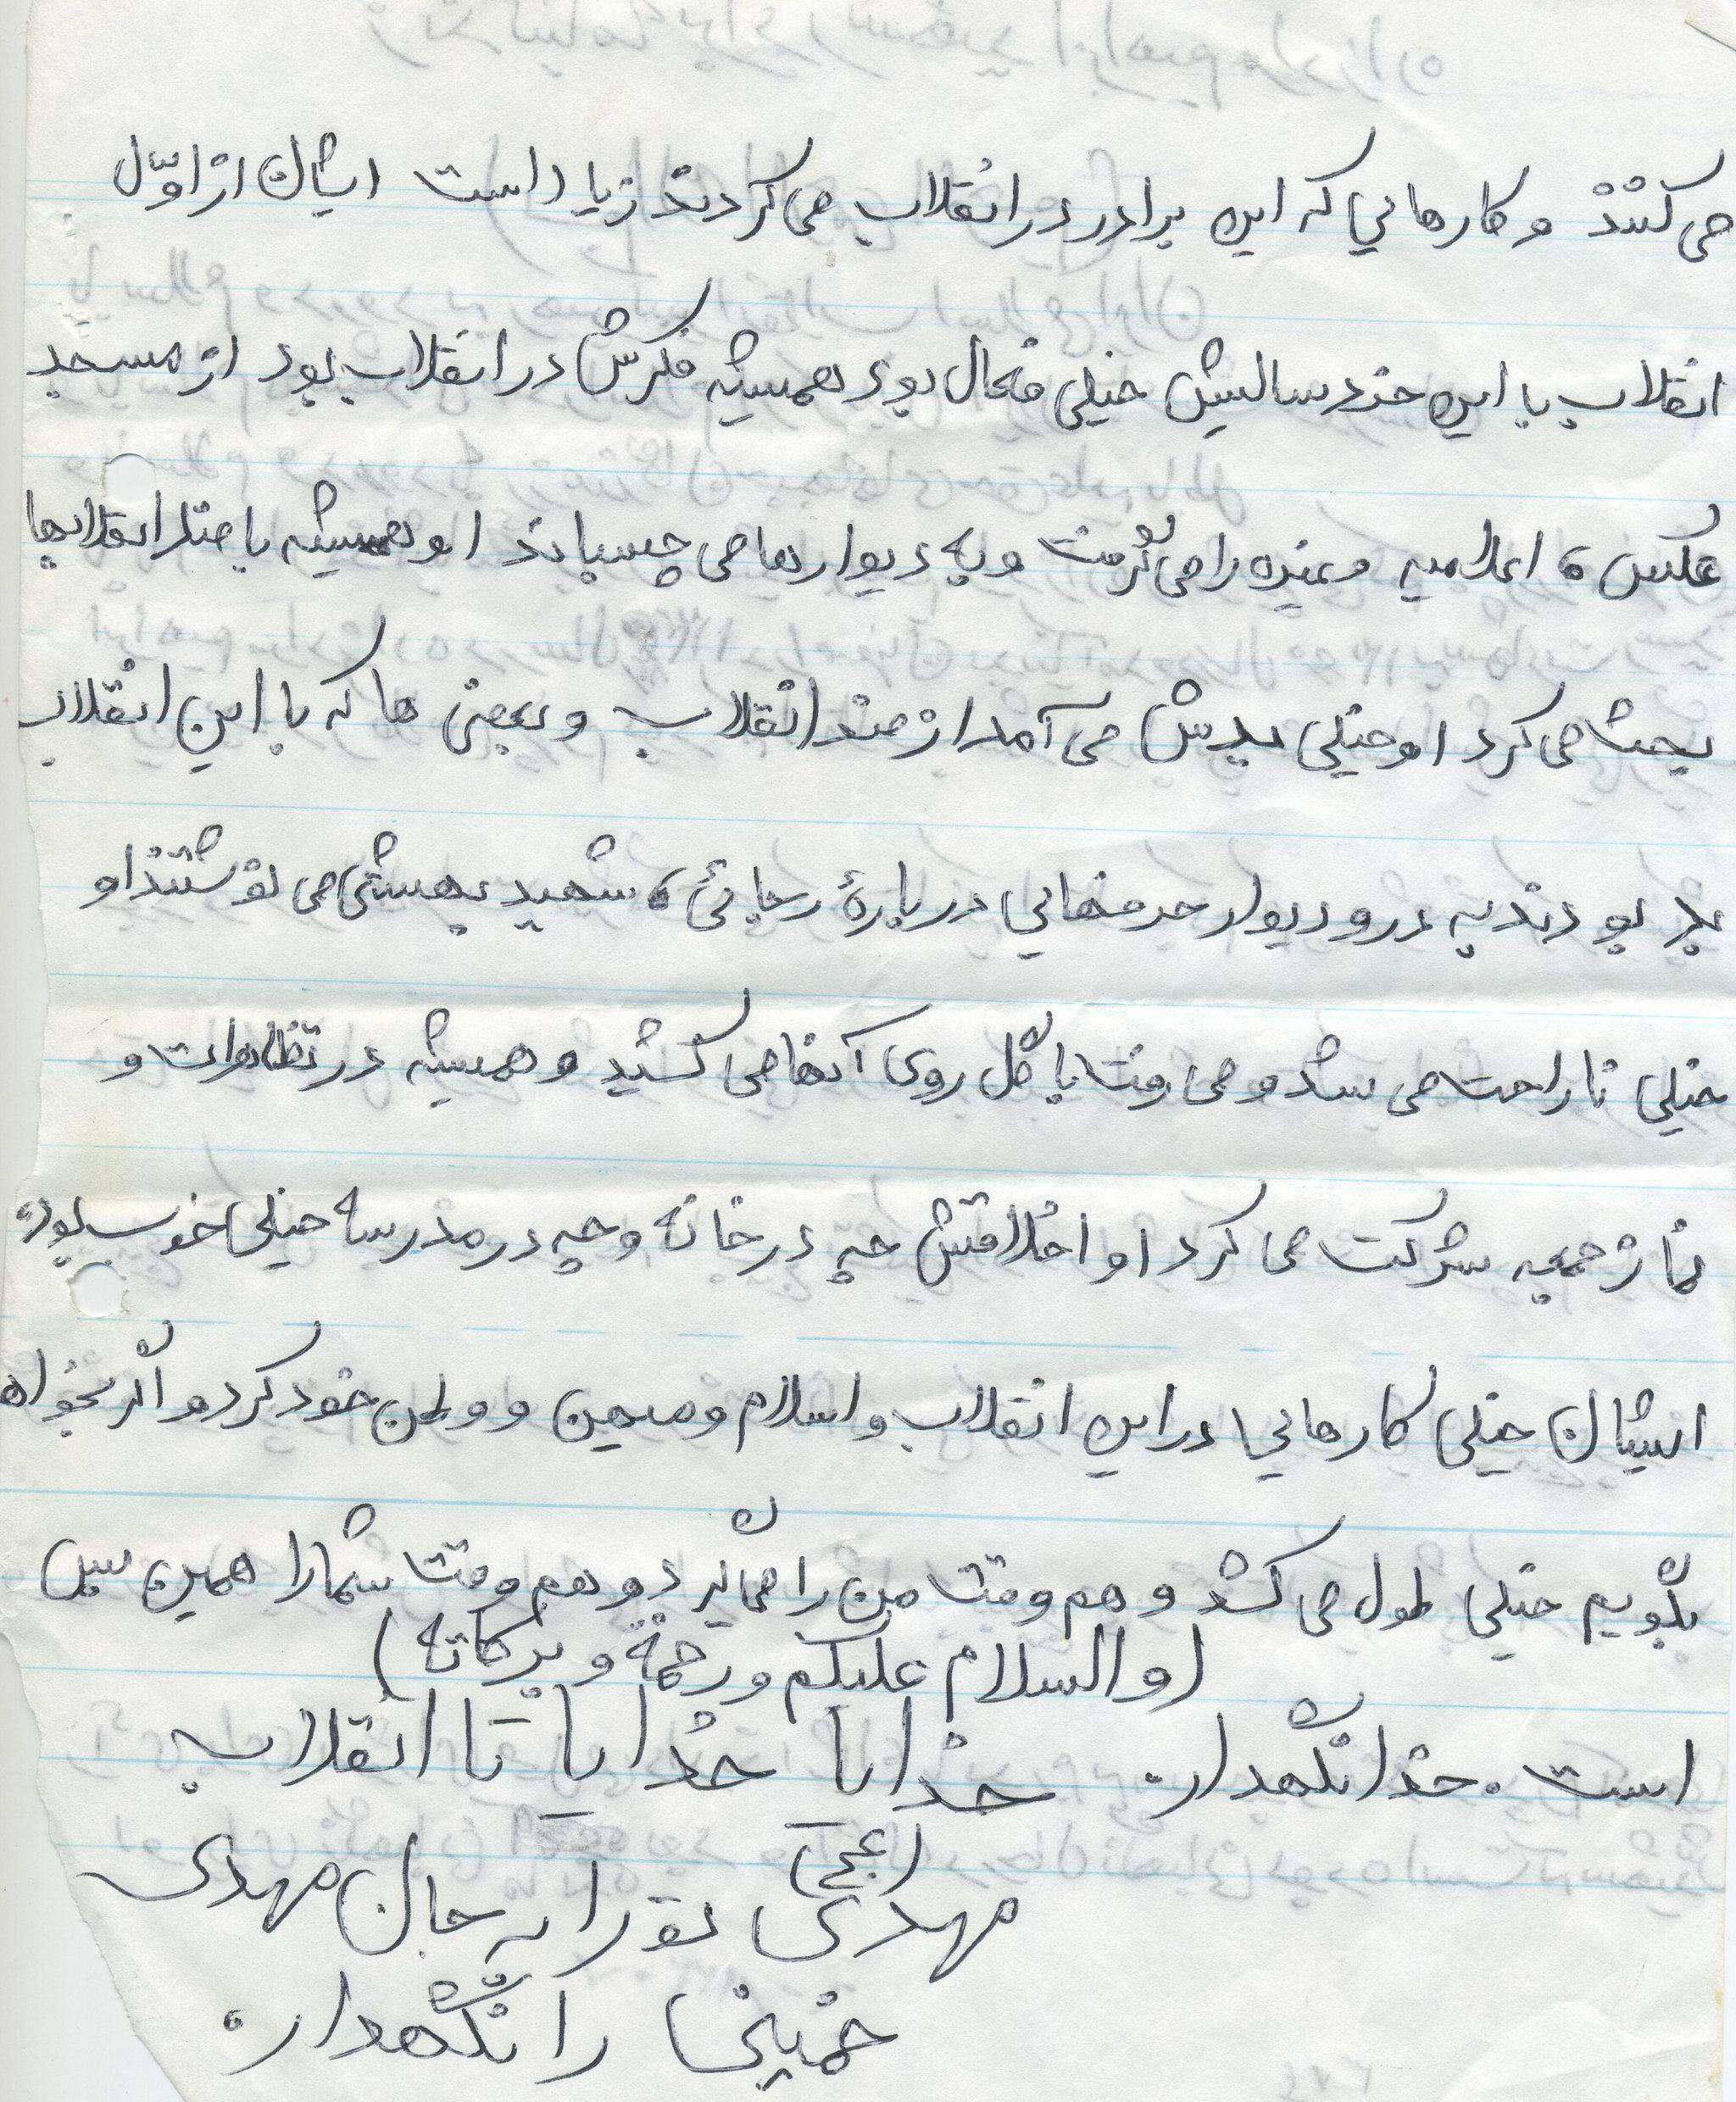 می کنند و کارهایی که این برادر در انقلاب می کردند زیاد است ایشان از اوّل
انقلاب با این خردسالیش خیلی فعال بود همیشه فکرش در انقلاب بود از مسجد
عکس، اعلامیه و غیره را می گرفت و به دیوارها می چسباند او همیشه با ضد انقلابها
بحث می کرد او خیلی بدش می آمد از ضد انقلاب و بعضی ها که با این انقلاب
بد بودند به در و دیوار حرفهایی دربارهٔ رجائی، شهید بهشتی می نوشتند او
خیلی ناراحت می شد و می رفت با گل روی آنها می کشید و همیشه در تظاهرات و
نماز جمعه شرکت می کرد او اخلاقش چه در خانه و چه در مدرسه خیلی خوب بود.
ایشان خیلی کارهایی در این انقلاب و اسلام و میهن و وطن خود کرد و اگر بخواهم
بگویم خیلی طول می کشد و هم وقت من را می گیرد و هم وقت شما را همین بس
(والسلام علیکم و رحمة و برکاته)
است. خدانگهدار. خدایا خدایا تا انقلاب
(عج)
مهدی تو را به جان مهدی
خمینی را نگهدار.